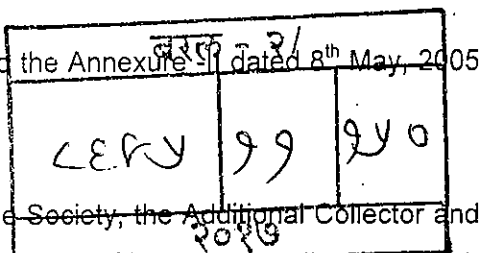 बरल - २/
the Annexure -II dated 8th May, 2005
११ १५०
Society, the Additional Collector and
२०१७